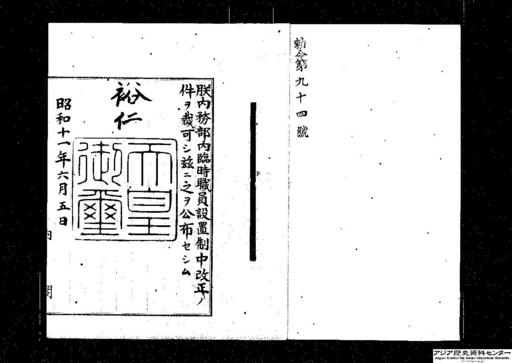 勅令第九十四號
朕内務部内臨時職員設置制中改正ノ
件ヲ裁可シ茲ニ之ヲ公布セシム
裕仁
天皇
御璽
昭和十一年六月五日
内閣
アジア歴史資料センター
Japan Center for Asian Historical Records